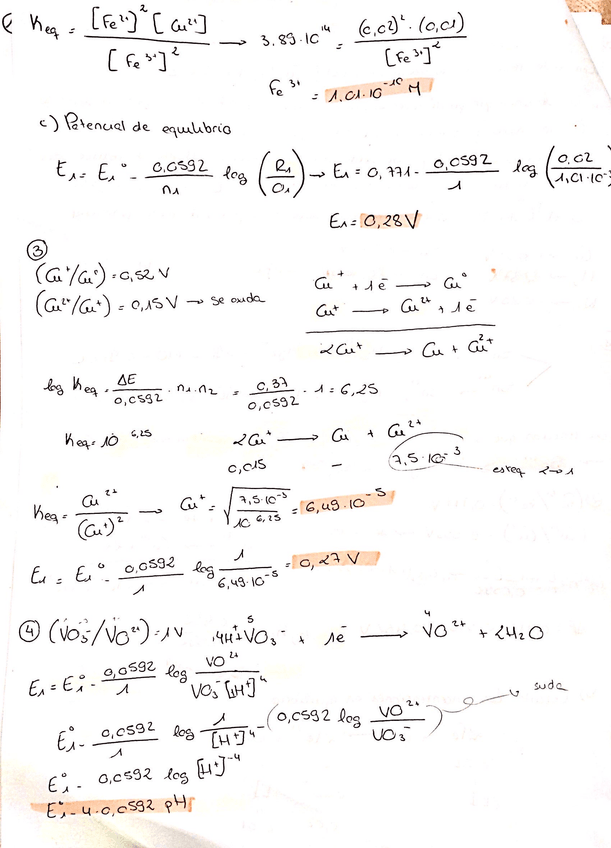 Keq = [Fe²⁺]² [Cu²⁺] / [Fe³⁺]² → 3.89·10¹⁴ = (0,02)²·(0,01) / [Fe³⁺]²
Fe³⁺ = 1,01·10⁻¹⁰ M
c) Potencial de equilíbrio
E₁ = E₁° - 0,0592/n₁ log (R₁/O₁) → E₁ = 0,771 - 0,0592/1 log (0,02/1,01·10⁻
E₁ = 0,28 V
③
(Cu⁺/Cu°) = 0,52 V
(Cu²⁺/Cu⁺) = 0,15 V → se oxida
Cu⁺ + 1é → Cu°
Cu⁺ → Cu²⁺ + 1é
2Cu⁺ → Cu + Cu²⁺
log Keq = ΔE/0,0592 · n₁·n₂ = 0,37/0,0592 · 1 = 6,25
Keq = 10^6,25 2Cu⁺ → Cu + Cu²⁺
0,015 - 7,5·10⁻³ esteq 2→1
Keq = Cu²⁺/(Cu⁺)² → Cu⁺ = √(7,5·10⁻³/10^6,25) = 6,49·10⁻⁵
E₁ = E₁° - 0,0592/1 log 1/6,49·10⁻⁵ = 0,27 V
④ (VO₃⁻/VO²⁺) = 1V 4H⁺ VO₃⁻ + 1é → VO²⁺ + 2H₂O
E₁ = E₁° - 0,0592/1 log VO²⁺/VO₃⁻[H⁺]⁴
E₁° - 0,0592/1 log 1/[H⁺]⁴ - (0,0592 log VO²⁺/VO₃⁻)
E₁° - 0,0592 log [H⁺]⁻⁴
E₁° - 4·0,0592 pH